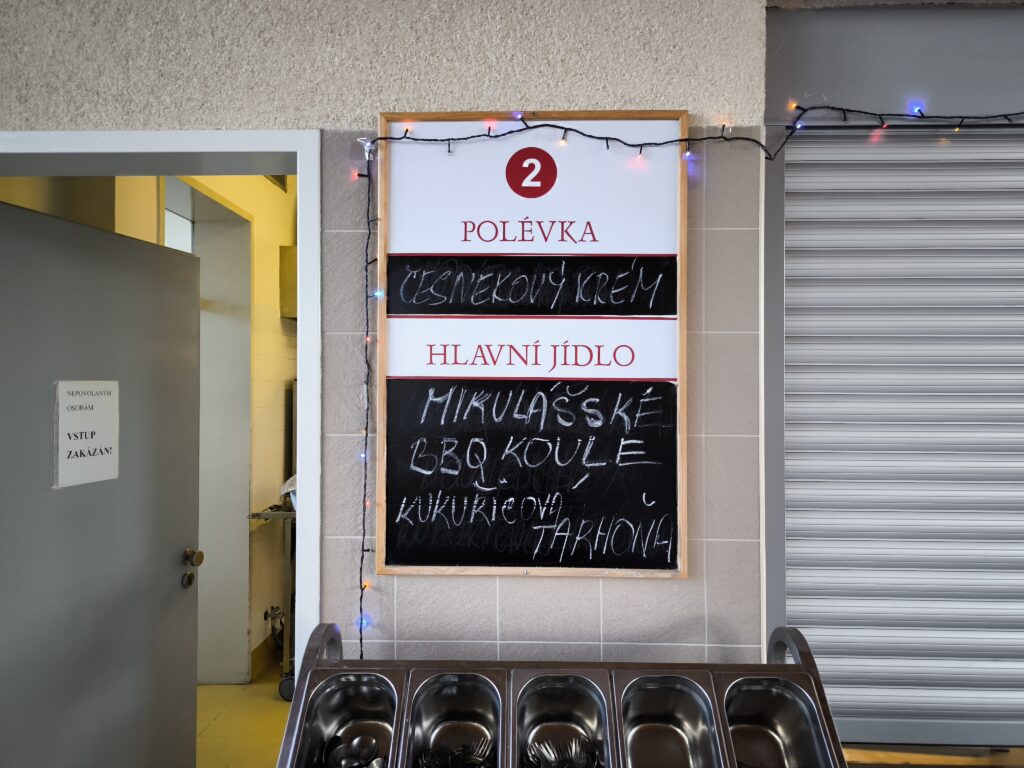 2
POLÉVKA
ČESNEKOVÝ KRÉM
HLAVNÍ JÍDLO
MIKULÁŠSKÉ
BBQ KOULE
KUKUŘIČOVÁ
TARHOŇA
NEPOVOLANÝM
OSOBÁM
VSTUP
ZAKÁZÁN!